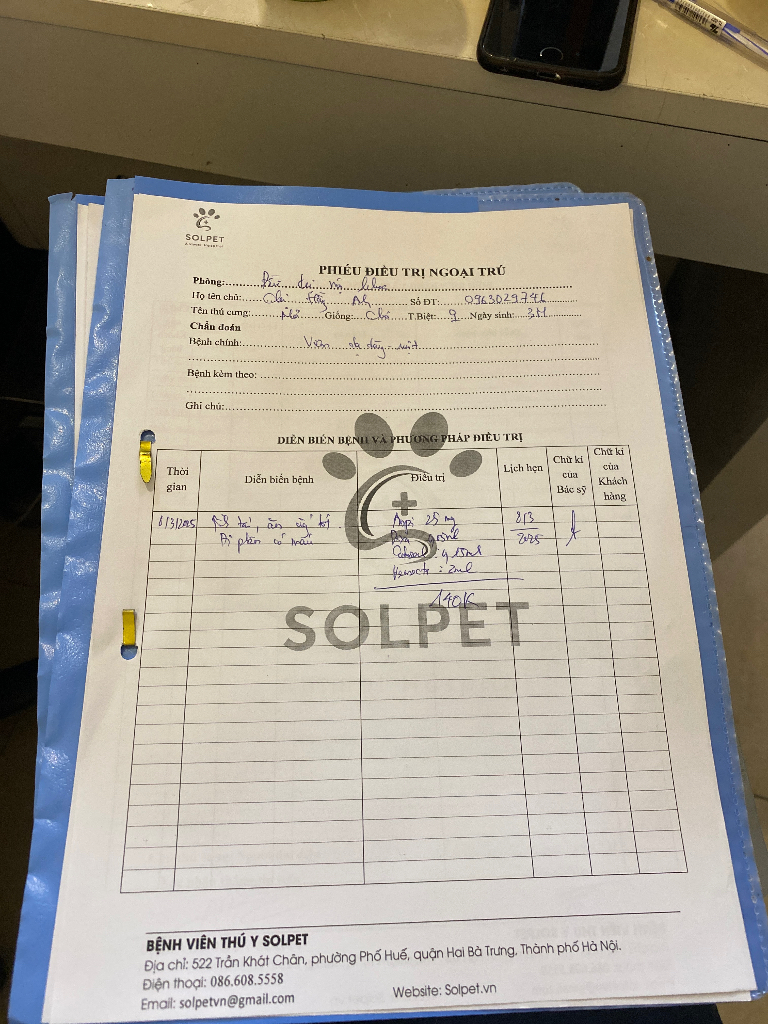 SOLPET
PHIẾU ĐIỀU TRỊ NGOẠI TRÚ
Phòng:
Họ tên chủ: Chị Hồng Số ĐT: 0963029746
Tên thú cưng: Giống: Chó T.Biệt: 9 Ngày sinh: 3M
Chẩn đoán
Bệnh chính: Viêm dạ dày ruột
Bệnh kèm theo:
Ghi chú:
DIỄN BIẾN BỆNH VÀ PHƯƠNG PHÁP ĐIỀU TRỊ
Thời gian
Diễn biến bệnh
Điều trị
Lịch hẹn
Chữ kí của Bác sỹ
Chữ kí của Khách hàng
8/3/2025
ăn
Đi phân có máu
25 mg
: 2ml
140K
8/3
2025
SOLPET
BỆNH VIỆN THÚ Y SOLPET
Địa chỉ: 522 Trần Khát Chân, phường Phố Huế, quận Hai Bà Trưng, Thành phố Hà Nội.
Điện thoại: 086.608.5558
Email: solpetvn@gmail.com Website: Solpet.vn